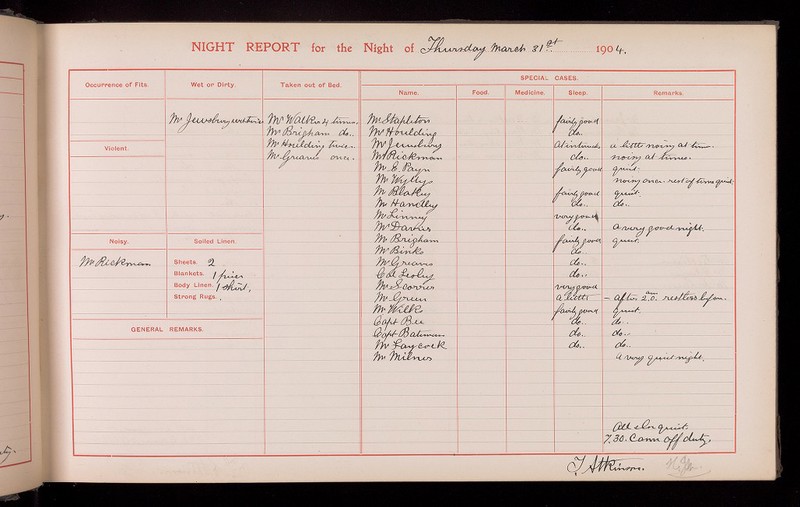 NIGHT REPORT for the Night of Thursday March 31st 1904.
SPECIAL CASES.
Occurrence of Fits. Wet or Dirty. Taken out of Bed. Name. Food. Medicine. Sleep. Remarks.
Mr Jewsbury Mr Walker 4 times. Mr Stapleton fairly good
Mr Brigham do.. Mr Houlding do..
Violent. Mr Houlding twice.. Mr Jewsbury At intervals a little noisy at times.
Mr Greaves once. Mr Rickman do.. noisy at times.
Mr E. Payn fairly good quiet.
Mr noisy once. rest of time quiet.
Mr Blakey fairly good quiet.
Mr Handley do.. do..
Mr Linney very good
Mr do.. a very good night.
Noisy. Soiled Linen. Mr Brigham fairly good quiet.
Mr Binks do.
Mr Rickman Sheets. 2 Mr Greaves do..
Blankets. 1 Col. do..
Body Linen. 1 Shirt, Mr very good
Strong Rugs. , Mr Green a little - after 2.0. am restless before.
Mr Wilks fairly good quiet.
Capt Bee do. do..
GENERAL REMARKS. Capt Bateman do.. do..
Mr Laycock do.. do..
Mr Milnes a very quiet night.
All else quiet.
7.30. Came off duty.
T Atkinson.